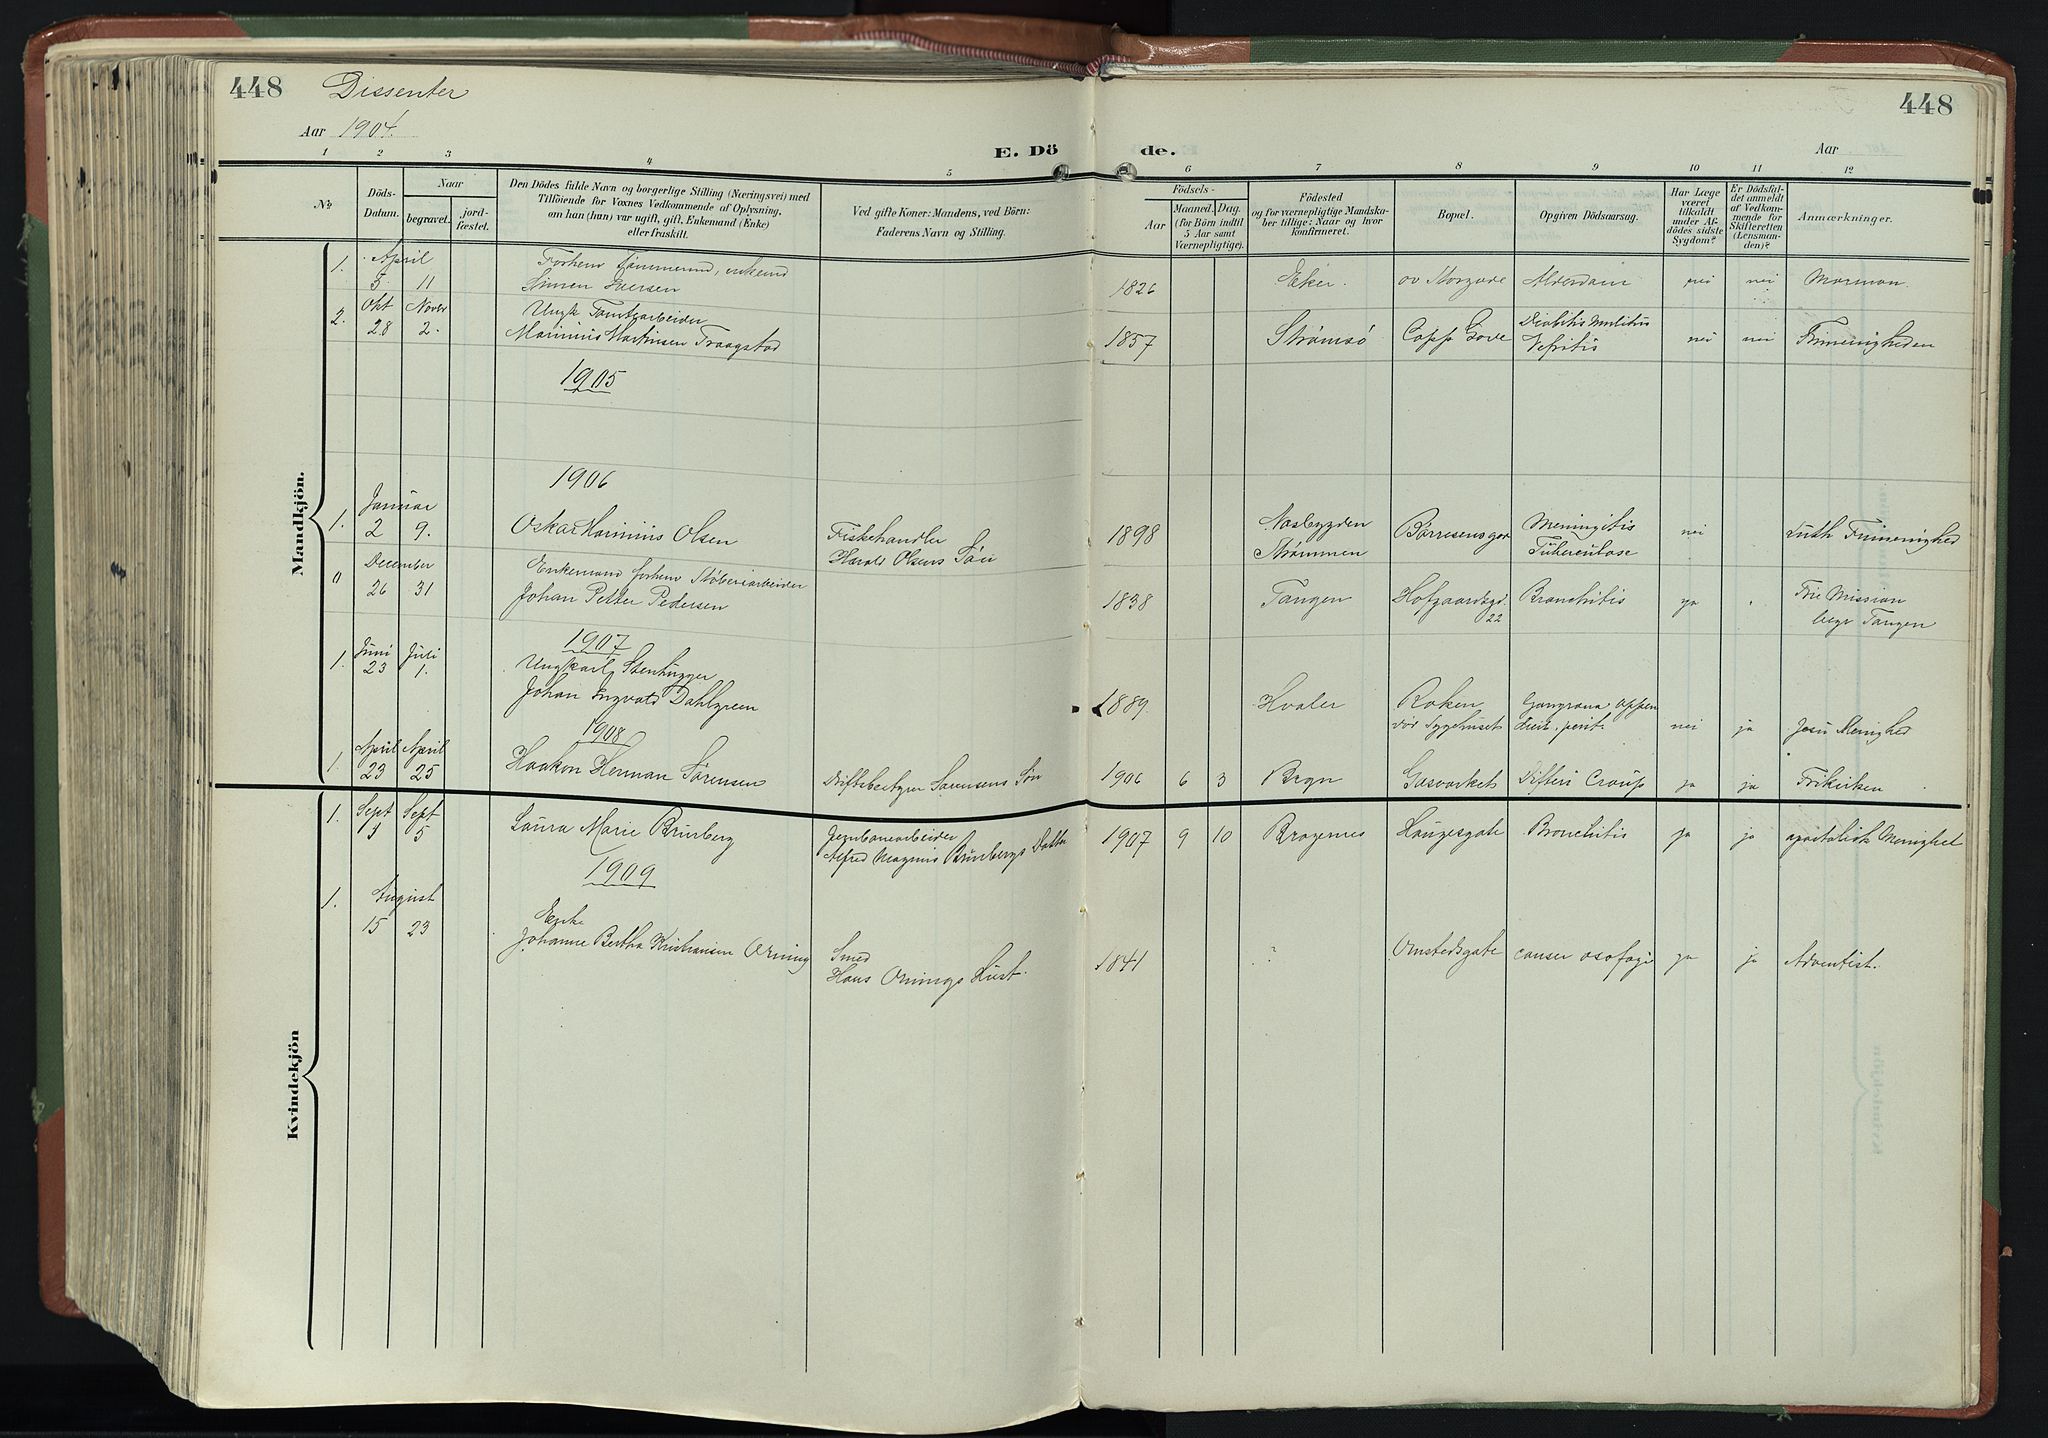 448 Dissenter 448
Aar 1904. Aar
E. Dö de.
1 2 3 4 5 6 7 8 9 10 11 12
№
Döds-
Datum.
Naar
begravet.
jord-
fæstet.
Den Dödes fulde Navn og borgerlige Stilling (Næringsvei) med
Tilföiende for Voxnes Vedkommende af Oplysning,
om han (hun) var ugift, gift, Enkemand (Enke)
eller fraskilt.
Ved gifte Koner: Mandens, ved Börn:
Faderens Navn og Stilling.
Födsels-
Aar
Maaned. Dag.
(for Börn indtil
5 Aar samt
Værnepligtige).
Födested
og for værnepligtige Mandska-
ber tillige: Naar og hvor
konfirmeret.
Bopæl.
Opgiven Dödsaarsag.
Har Læge
været
tilkaldt
under Af-
dödes sidste
Sygdom?
Er Dödsfal-
det anmeldt
af Vedkom-
mende for
Skifteretten
(Lensman-
den)?
Anmærkninger.
Mandkjön.
1. April
5. 11
Simen Iversen 1826 Eker. Alderdom nei nei Mormon.
2. Okt Novbr Ungk
28 2. Marinius Martinsen Traagstad 1857 Strømsø Nefritis nei nei Frimenigheden
1905
1906
1. Januar
2 9. Oskar Marinius Olsen Fiskehandler
Harald Olsens Søn 1898 Næsbygden
Strømmen Børresensgd Meningitis
Tüberculose nei Luth Frimenighed
0 December Enkemand forhenv Støberiarbeider
26 31 Johan Petter Pedersen 1838 Tangen Hofgaardsgd.
22 Bronchitis ja Frie Mission
Tangen
1907
1. Juni Juli Ungkarl, Stenhugger
23 1. Johan Ingvald Dahlgreen 1889. Hvaler Røken
Sygehuset nei ja Jesu Menighed
1908
1. April April
23 25 Haakon Herman Sørensen Driftsbestyrer Sørensens Søn 1906 6 3 Gasværket Difteri Croup ja ja Frikirken
Kvindekjön
1. Sept Sept
1 5 Laura Marie Brunberg Jernbanearbeider
Alfred Magnus Brunbergs Datter 1907 9 10 Bragernes Haugesgate Bronchitis ja ja apostolisk Menighet
1909
1. August
15 23 Enke
Johanne Bertha Kristiansen Orning Smed
Hans Ornings Hust. 1841 ? cancer osofagi ja ja Adventist.